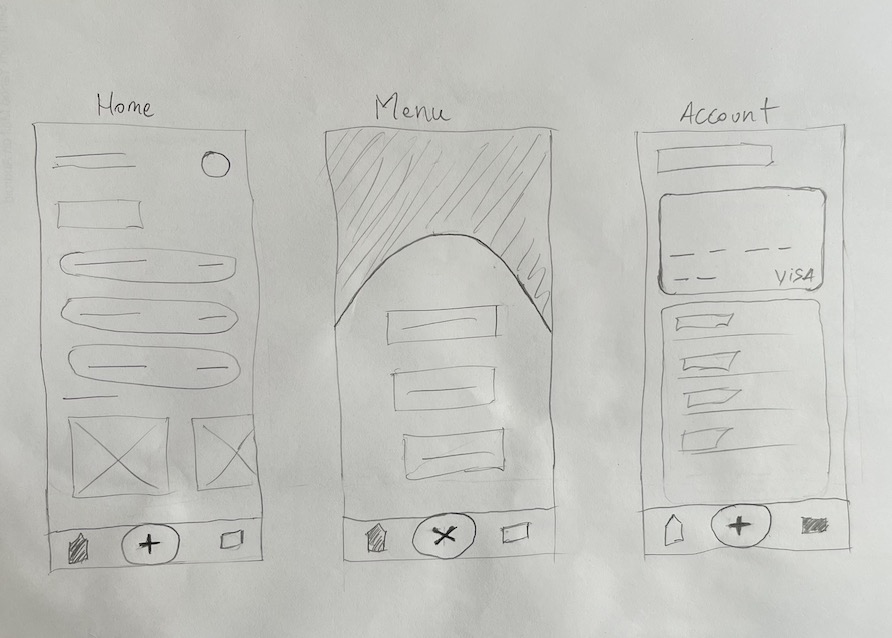 Home
Menu
Account
VISA